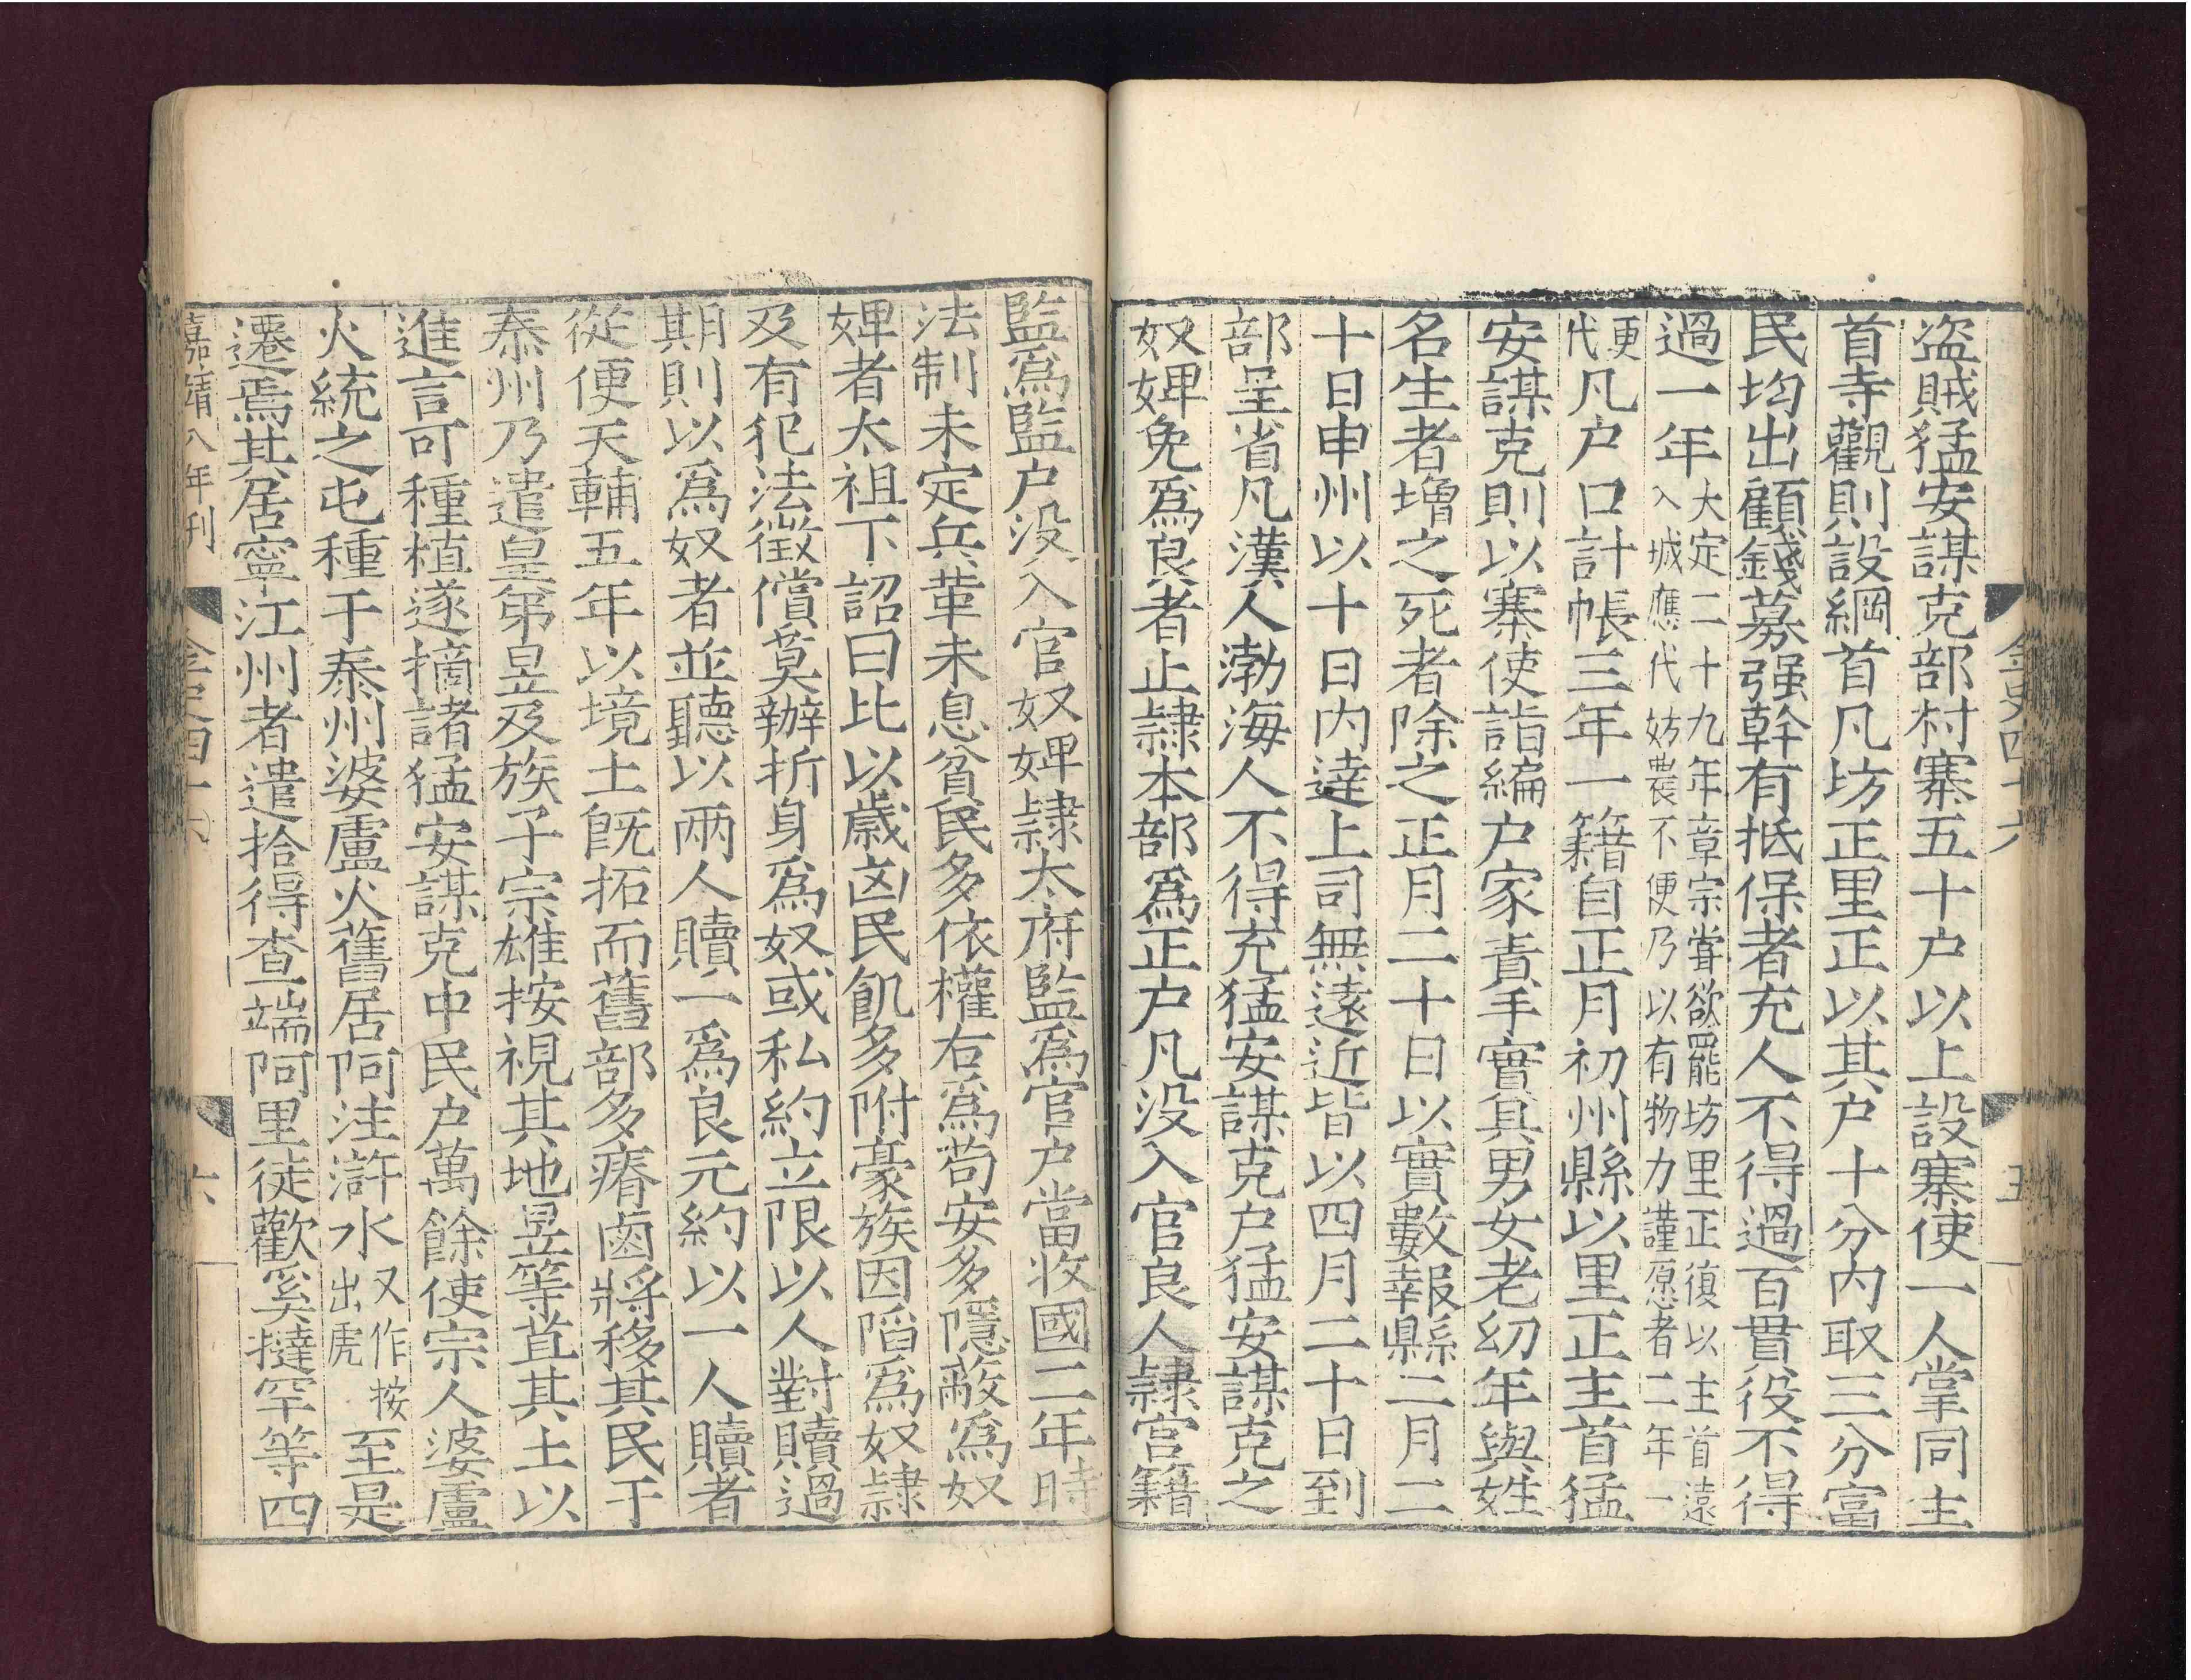 金史四十六
五
盗賊猛安謀克部村寨五十户以上設寨使一人掌同主
首寺觀則設綱首凡坊正里正以其户十分内取三分富
民均出顧錢募强幹有抵保者充人不得過百貫役不得
過一年大定二十九年章宗嘗欲罷坊里正復以主首遠
入城應代妨農不便乃以有物力謹愿者二年一
更代凡户口計帳三年一籍自正月初州縣以里正主首猛
安謀克則以寨使詣編户家責手實具男女老幼年與姓
名生者増之死者除之正月二十日以實數報縣二月二
十日申州以十日内達上司無遠近皆以四月二十日到
部呈省凡漢人渤海人不得充猛安謀克户猛安謀克之
奴婢免爲良者止隷本部爲正户凡没入官良人隷宫籍
監爲監户没入官奴婢隷太府監爲官户當收國二年時
法制未定兵革未息貧民多依權右爲苟安多隱蔽爲奴
婢者太祖下詔曰比以歳凶民飢多附豪族因陷爲奴隷
及有犯法徴償莫辦折身爲奴或私約立限以人對贖過
期則以爲奴者並聽以兩人贖一爲良元約以一人贖者
從便天輔五年以境土既拓而舊部多瘠鹵將移其民于
泰州乃遣皇弟昱及族子宗雄按視其地昱等苴其土以
進言可種植遂摘諸猛安謀克中民户萬餘使宗人婆盧
火統之屯種于泰州婆盧火舊居阿注滸水又作按
出虎至是
遷焉其居寧江州者遣拾得查端阿里徒歡奚撻罕等四
嘉靖八年刊
金史四十六
六